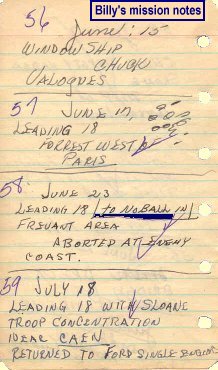 Billy's mission notes
56 June: 15
WINDOW SHIP
CHUCK
VALOGUES
57 JUNE 17,
LEADING 18
FORREST WEST of
PARIS
58 JUNE 23
LEADING 18 to NOBALL IN
FREVANT AREA
ABORTED AT ENEMY
COAST.
59 JULY 18
LEADING 18 WITH SLOANE
TROOP CONCENTRATION
NEAR CAEN
RETURNED TO FORD SINGLE